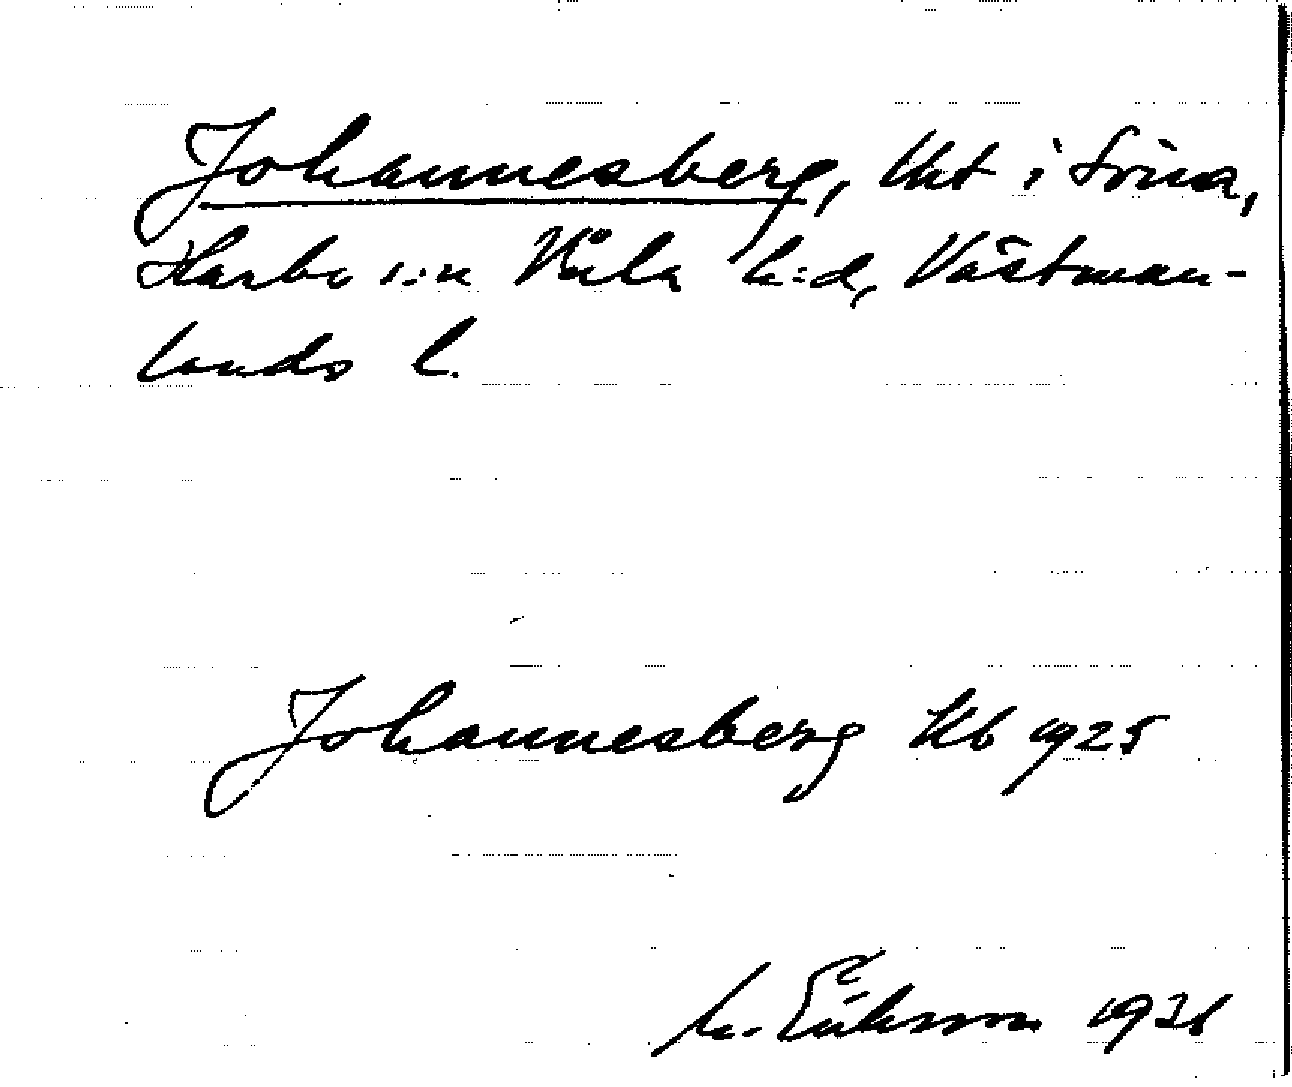 Johannesberg, lht i Srina,
Harbo s:n Våla h:d, Västman-
lands l.
Johannesberg Kb 1925
M. Eriksson 1931